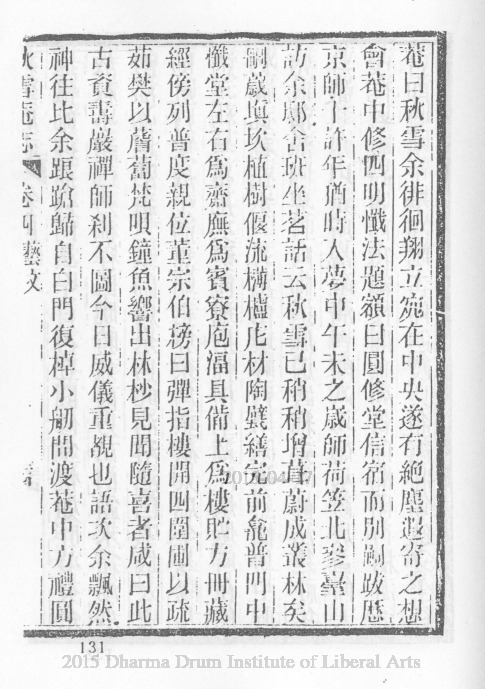 菴曰秋雪余徘徊翔立宛在中央遂有絕塵遐寄之想
會菴中修四明懺法題額曰圓修堂信宿而別嗣跋歷
京師十許年猶時入夢中午未之歲師荷笠北參臺山
訪余邸舍班坐茗話云秋雪已稍稍增葺蔚成叢林矣
嗣歲塡坎植樹偃流構櫨庀材陶甓繕完前龕普門中
懺堂左右爲齋廡爲賓寮庖湢具備上爲樓貯方冊藏
經傍列普度親位董宗伯榜曰彈指樓開四圍圃以疏
茹樊以薝蔔梵唄鐘魚響出林杪見聞隨喜者咸曰此
古資壽巖禪師刹不圖今日威儀重覩也語次余飄然
神往比余踉蹌歸自白門復棹小舠問渡菴中方禮圓
秋雪菴志 卷四藝文
131
2015/04/17
2015 Dharma Drum Institute of Liberal Arts